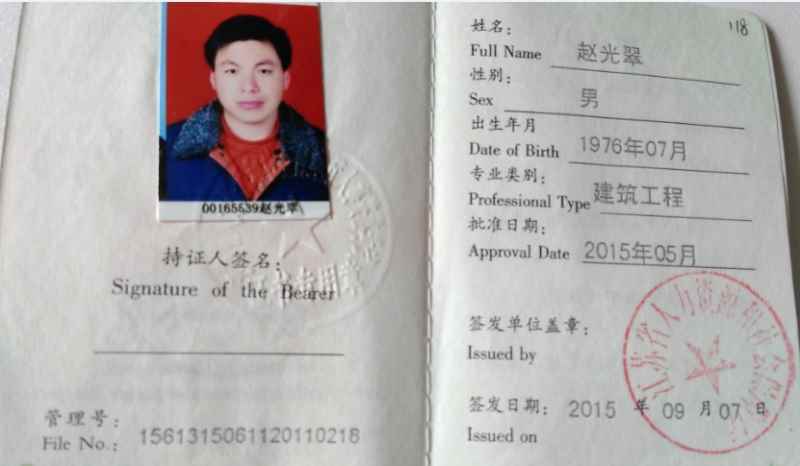 00165539赵光翠
持证人签名：
Signature of the Bearer
管理号：
File No.：
15613150611201​10218
118
姓名：
Full Name
赵光翠
性别：
Sex
男
出生年月
Date of Birth
1976年07月
专业类别：
Professional Type
建筑工程
批准日期：
Approval Date
2015年05月
签发单位盖章：
Issued by
江苏省人力资源和社
签发日期：
2015 年 09 月 07 日
Issued on